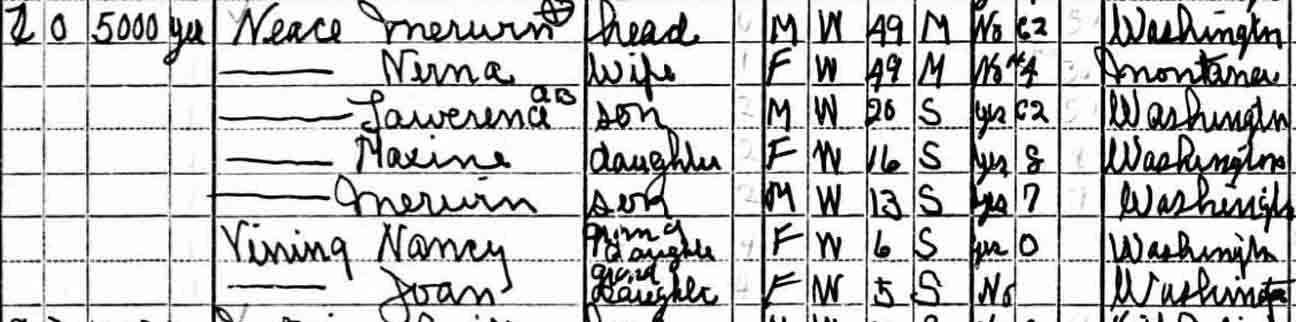 2 0 5000 yes Neace Merwin head M W 49 M No C2 Washington
Nerna wife F W 49 M No H4 Montana
Lawerence ab son M W 20 S yes C2 Washington
Maxine daughter F W 16 S yes 8 Washington
Merwin son M W 13 S yes 7 Washington
Vining Nancy grand daughter F W 6 S yes 0 Washington
Joan grand daughter F W 5 S No Washington